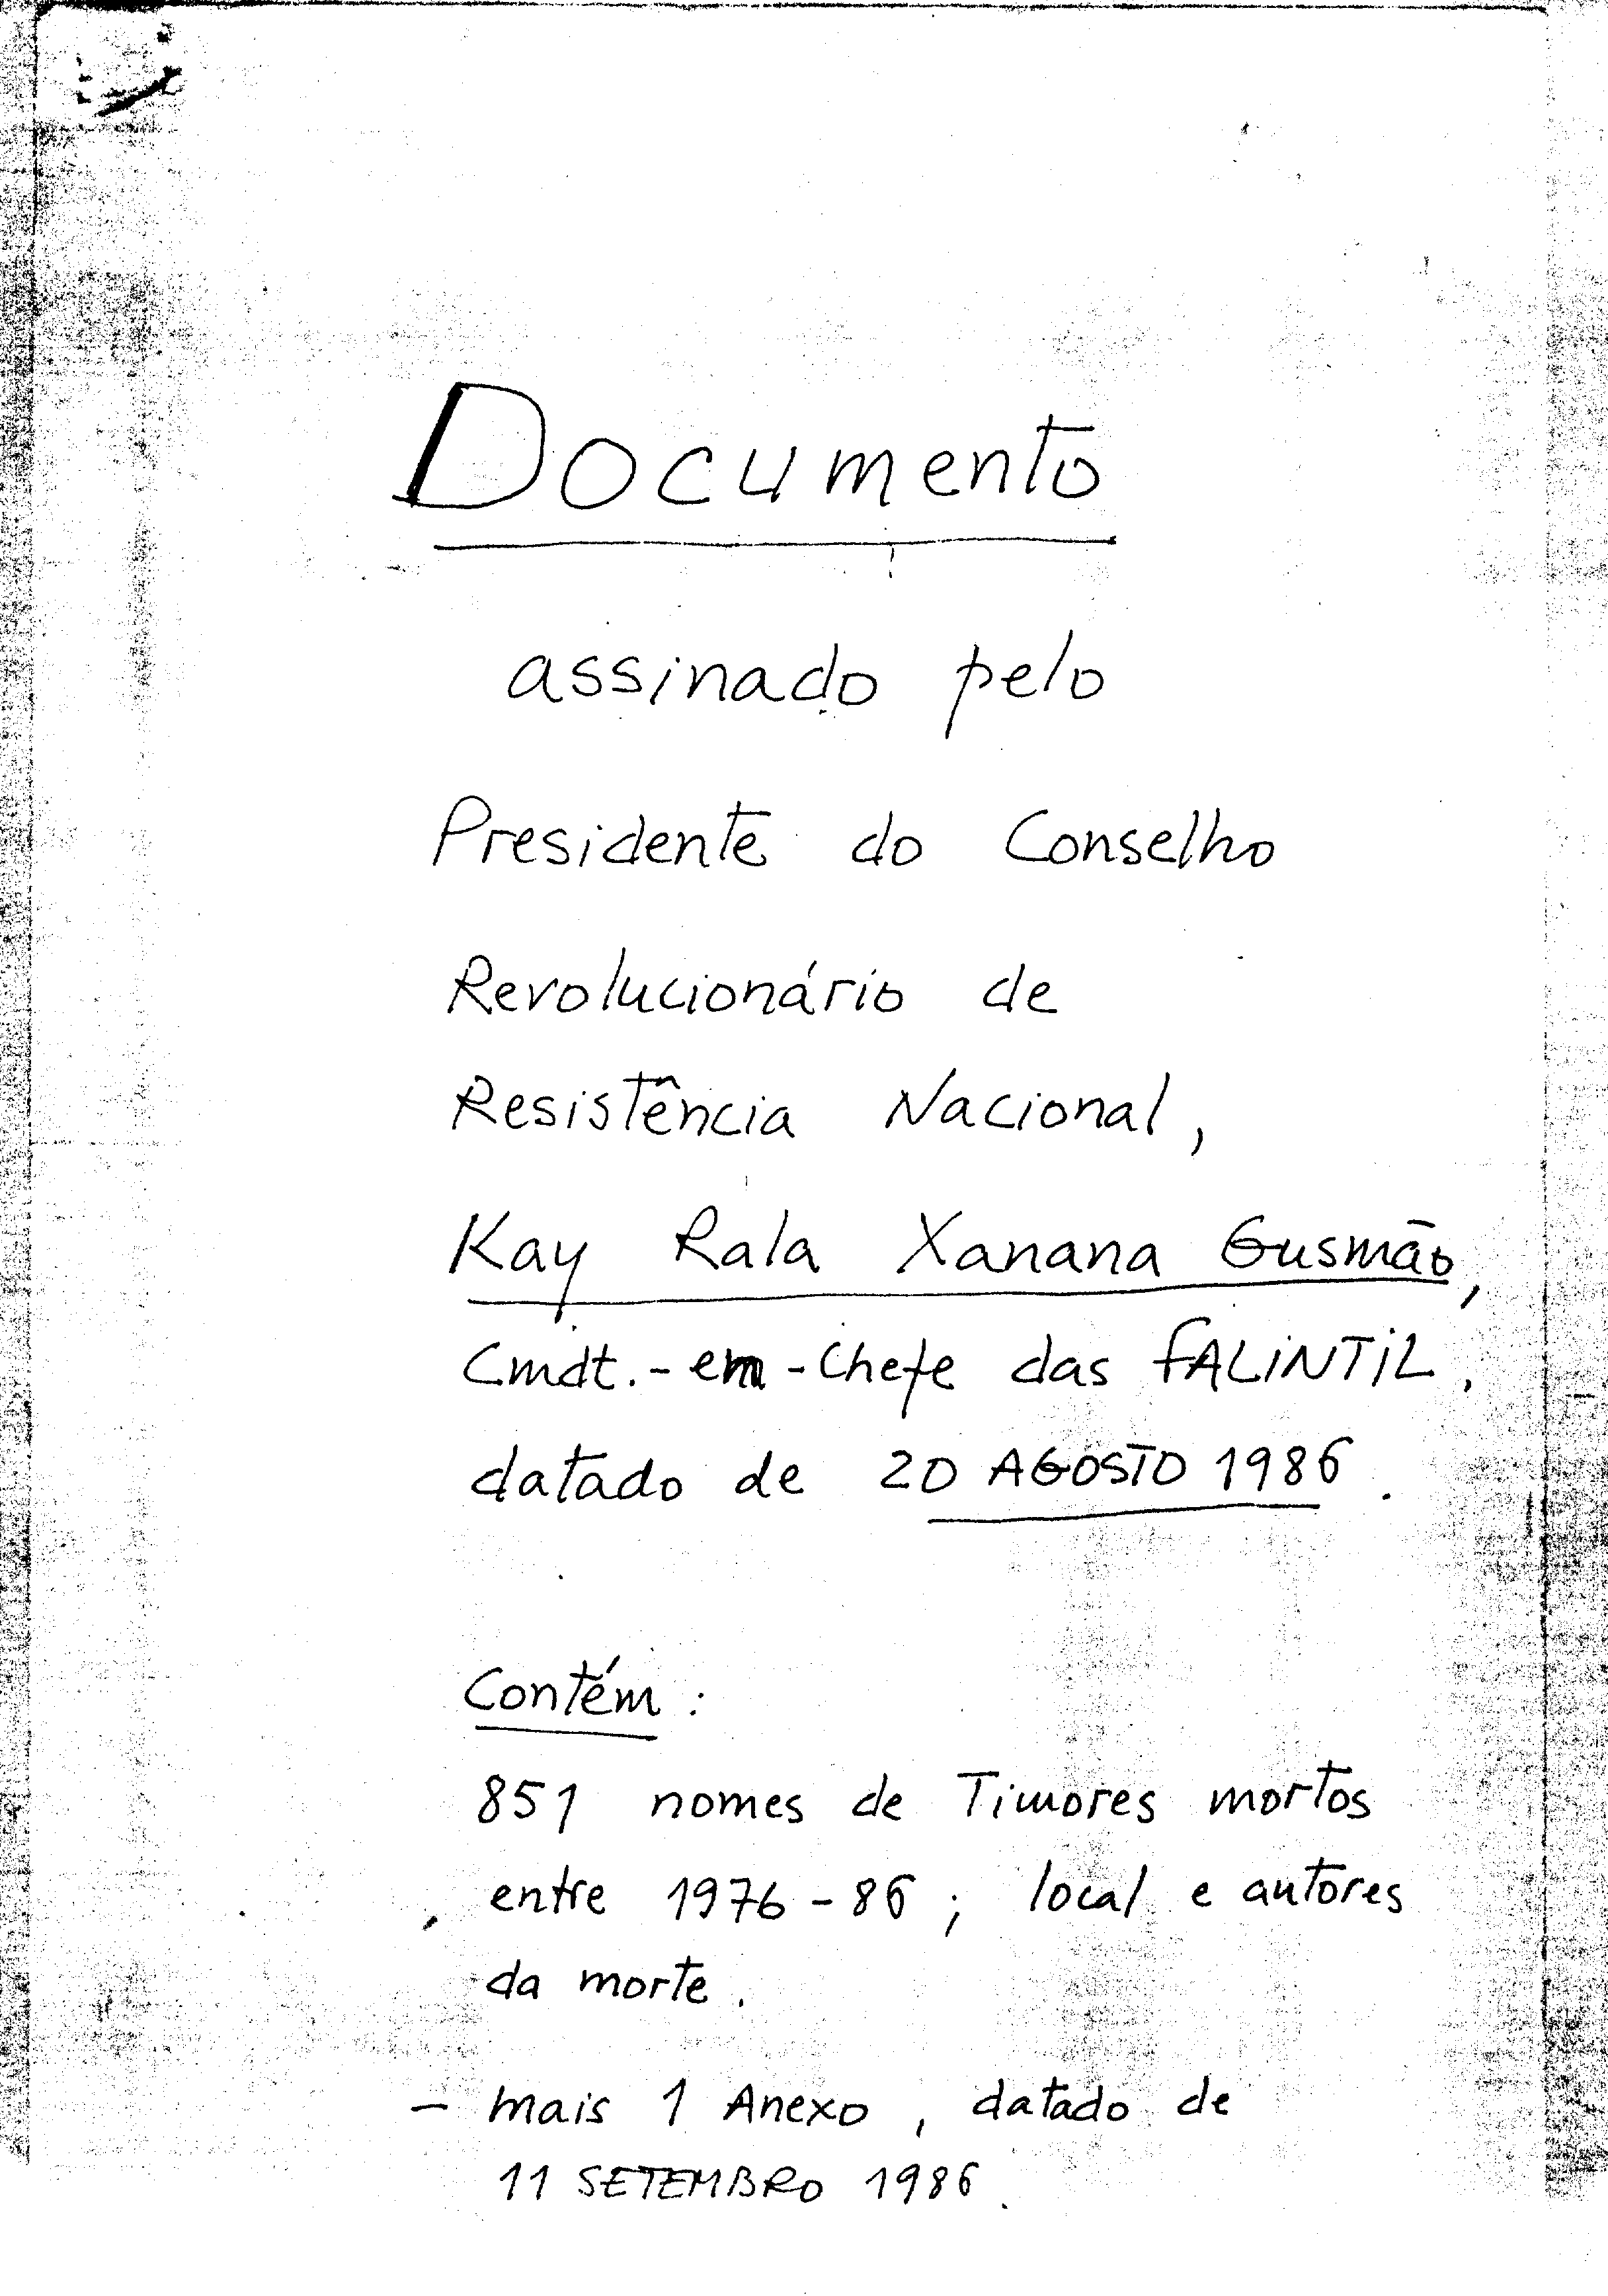 Documento
assinado pelo
Presidente do Conselho
Revolucionário de
Resistência Nacional,
Kay Rala Xanana Gusmão,
Cmdt.-em-Chefe das FALINTIL,
datado de 20 AGOSTO 1986.
Contém:
851 nomes de Timores mortos
entre 1976-86; local e autores
da morte.
- mais 1 Anexo, datado de
11 SETEMBRO 1986.